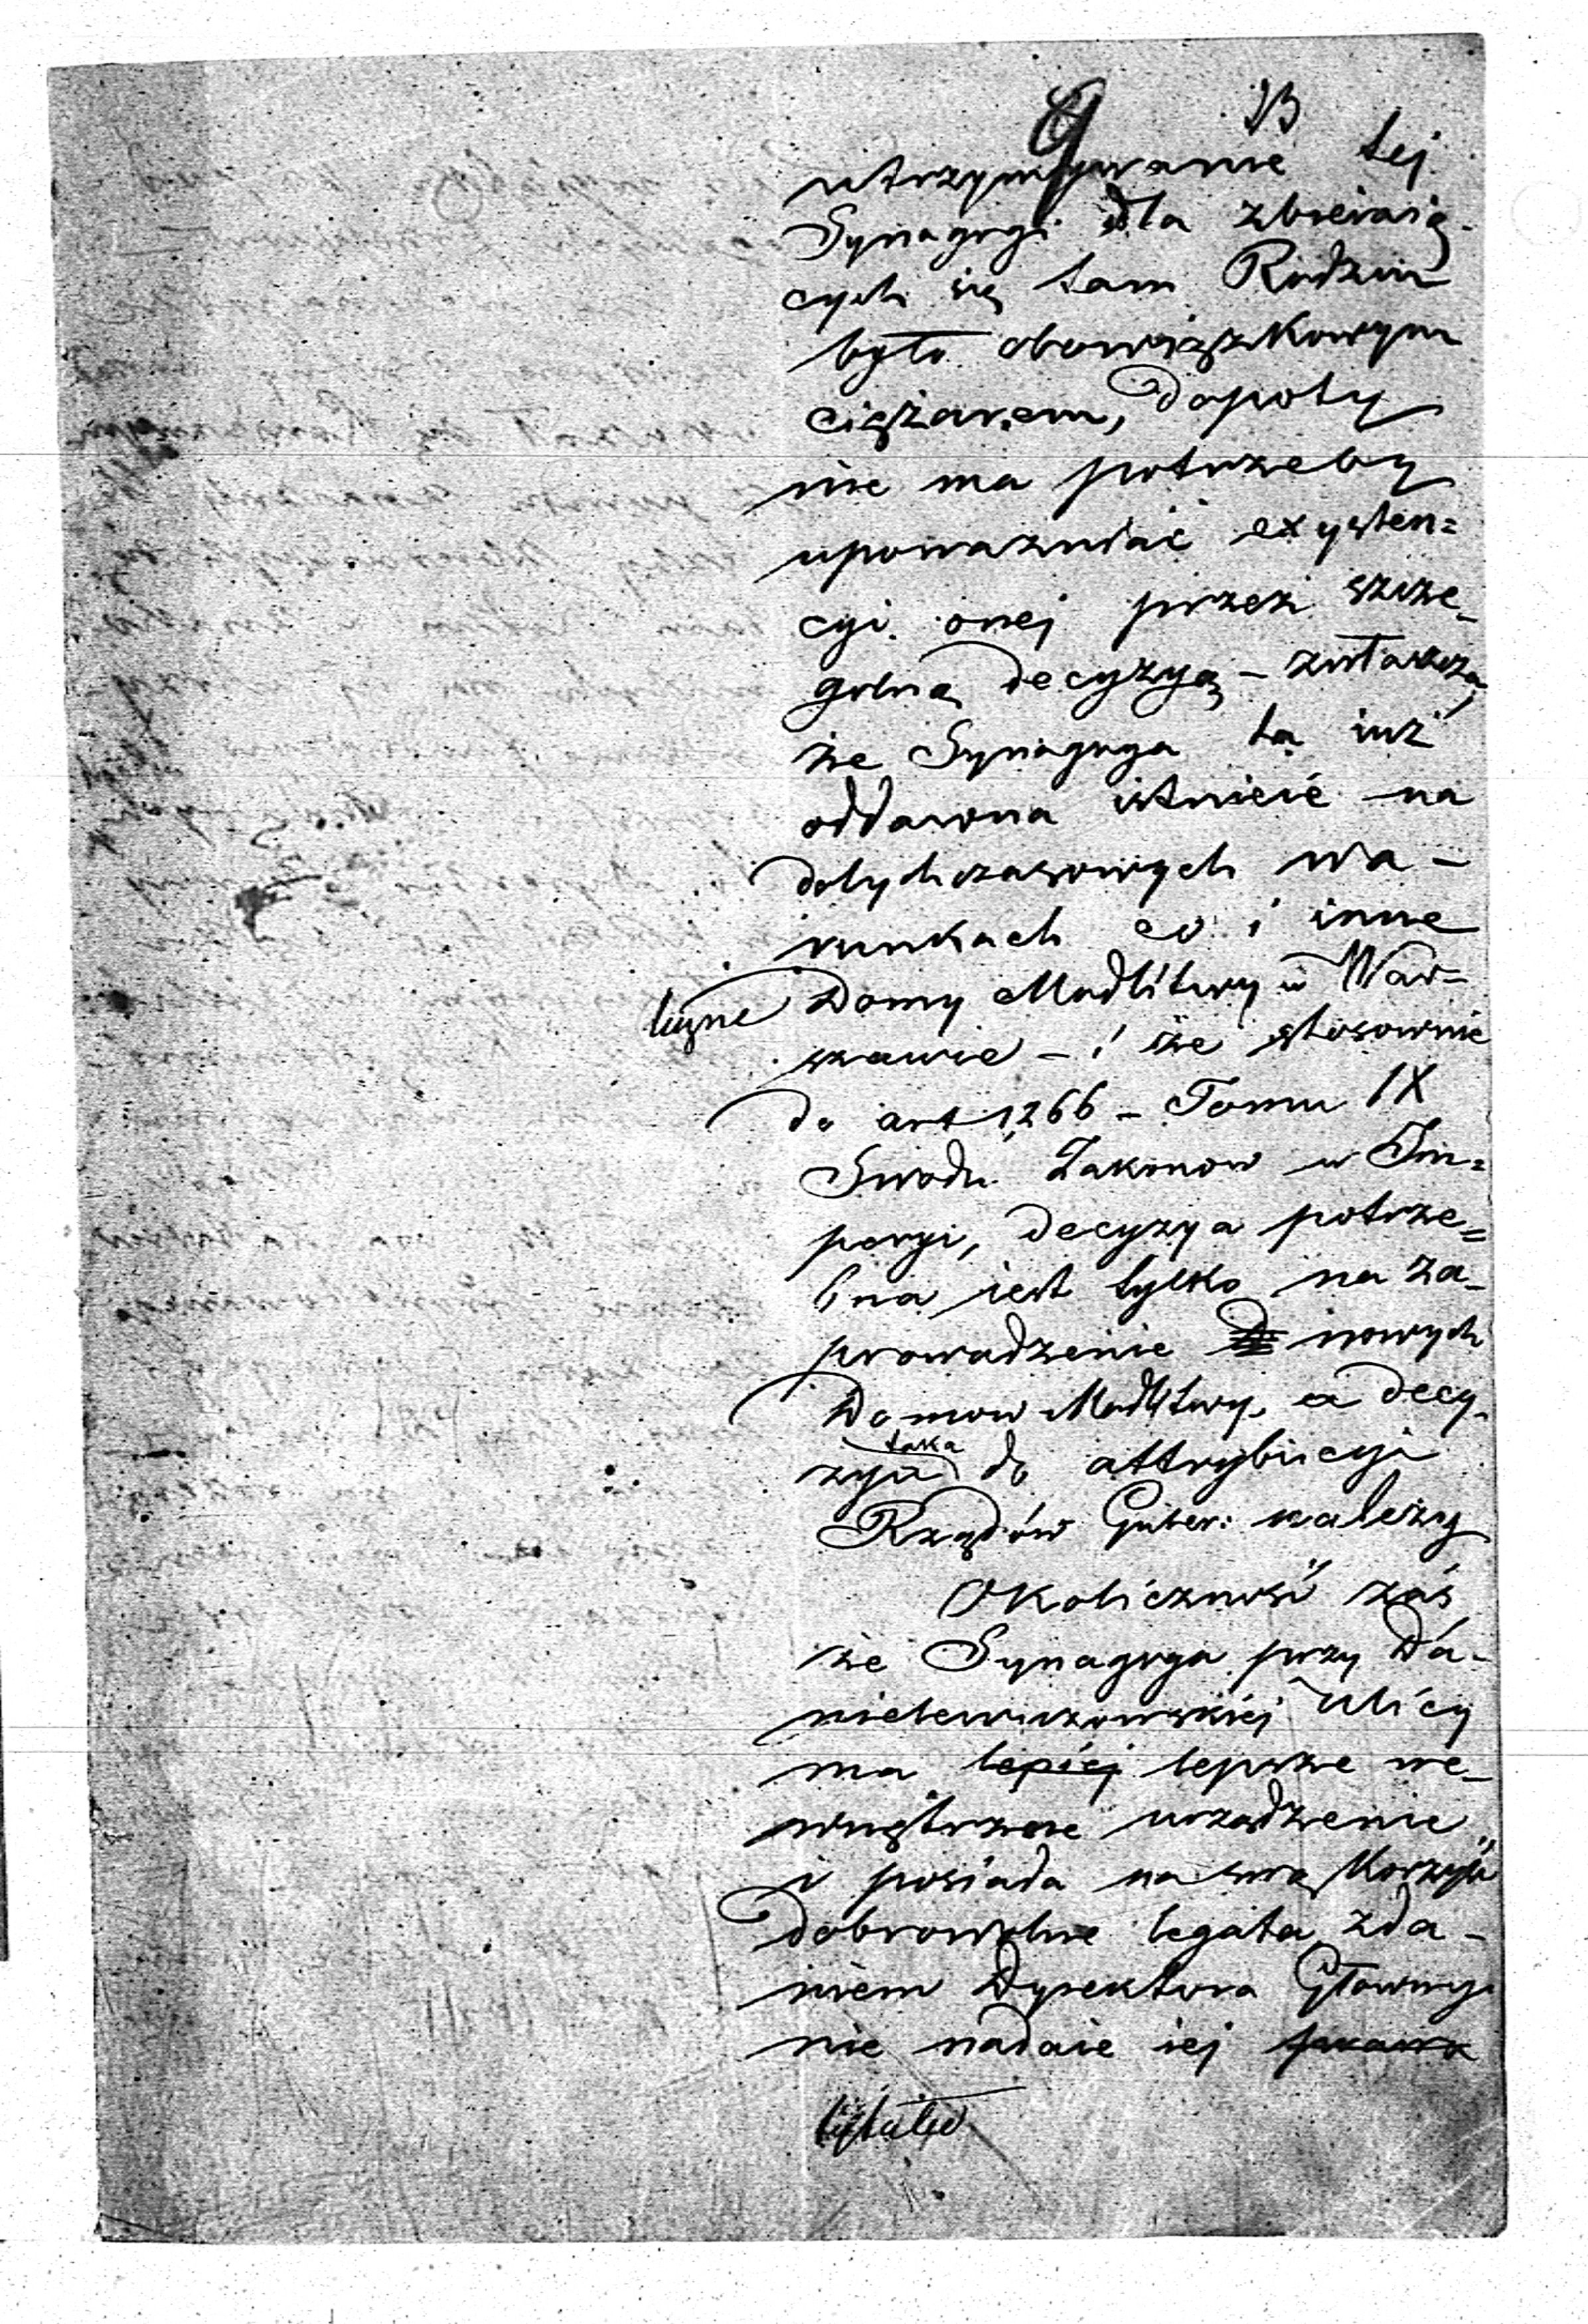 9 23
utrzymywanie tej
Synagogi dla zbieraią-
cych się tam Rodzin
było obowiązkowym
ciężarem, dopoty
nie ma potrzeby
upoważniać exysten=
cyi onej przez szcze-
golną decyzyą – zwłaszcza,
że Synagoga ta iuż
oddawna istnieie na
dotychczasowych wa-
runkach co i inne
liczne Domy Modlitwy w War-
szawie – i że stosownie
do art 1266 – Tomu IX
Swodu Zakonow w Im=
peryi, decyzya potrze=
bna iest tylko na za-
prowadzenie nowych
Domow Modlitwy, a decy-
zya taka do attrybucyi
Rządów Guber: należy
Okoliczność zaś
że Synagoga przy Da-
nielewiczowskiej Ulicy
ma lepiej lepsze we-
wnętrzne urządzenie
i posiada na swą korzyść
dobrowolne legata, zda-
niem Dyrektora Głównego
nie nadaie iej prawa
tytułu